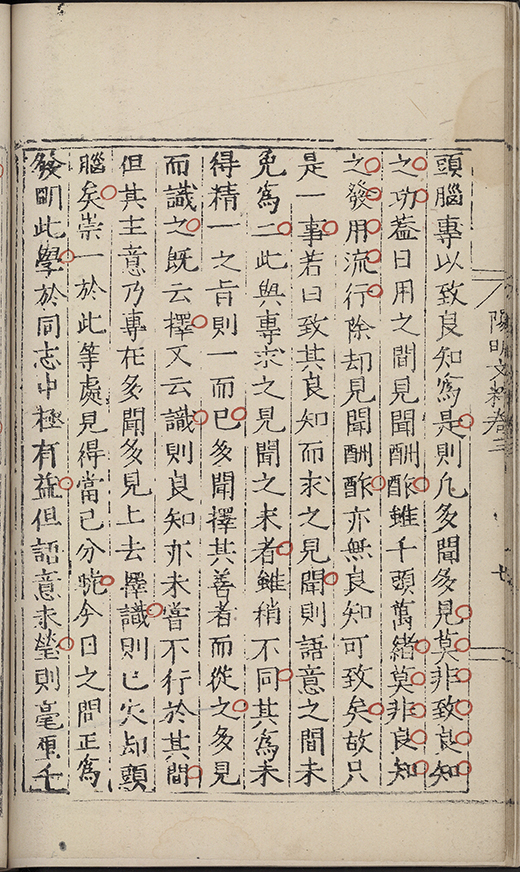 陽明文粹卷三
七
頭腦專以致良知爲是則凡多聞多見莫非致良知
之功葢日用之間見聞酬酢雖千頭萬緒莫非良知
之發用流行除却見聞酬酢亦無良知可致矣故只
是一事若曰致其良知而求之見聞則語意之間未
免爲二此與專求之見聞之末者雖稍不同其爲未
得精一之旨則一而已多聞擇其善者而從之多見
而識之既云擇又云識則良知亦未嘗不行於其間
但其主意乃專在多聞多見上去擇識則已失却頭
腦矣崇一於此等處見得當已分曉今日之問正爲
發明此學於同志中極有益但語意未瑩則毫厘千